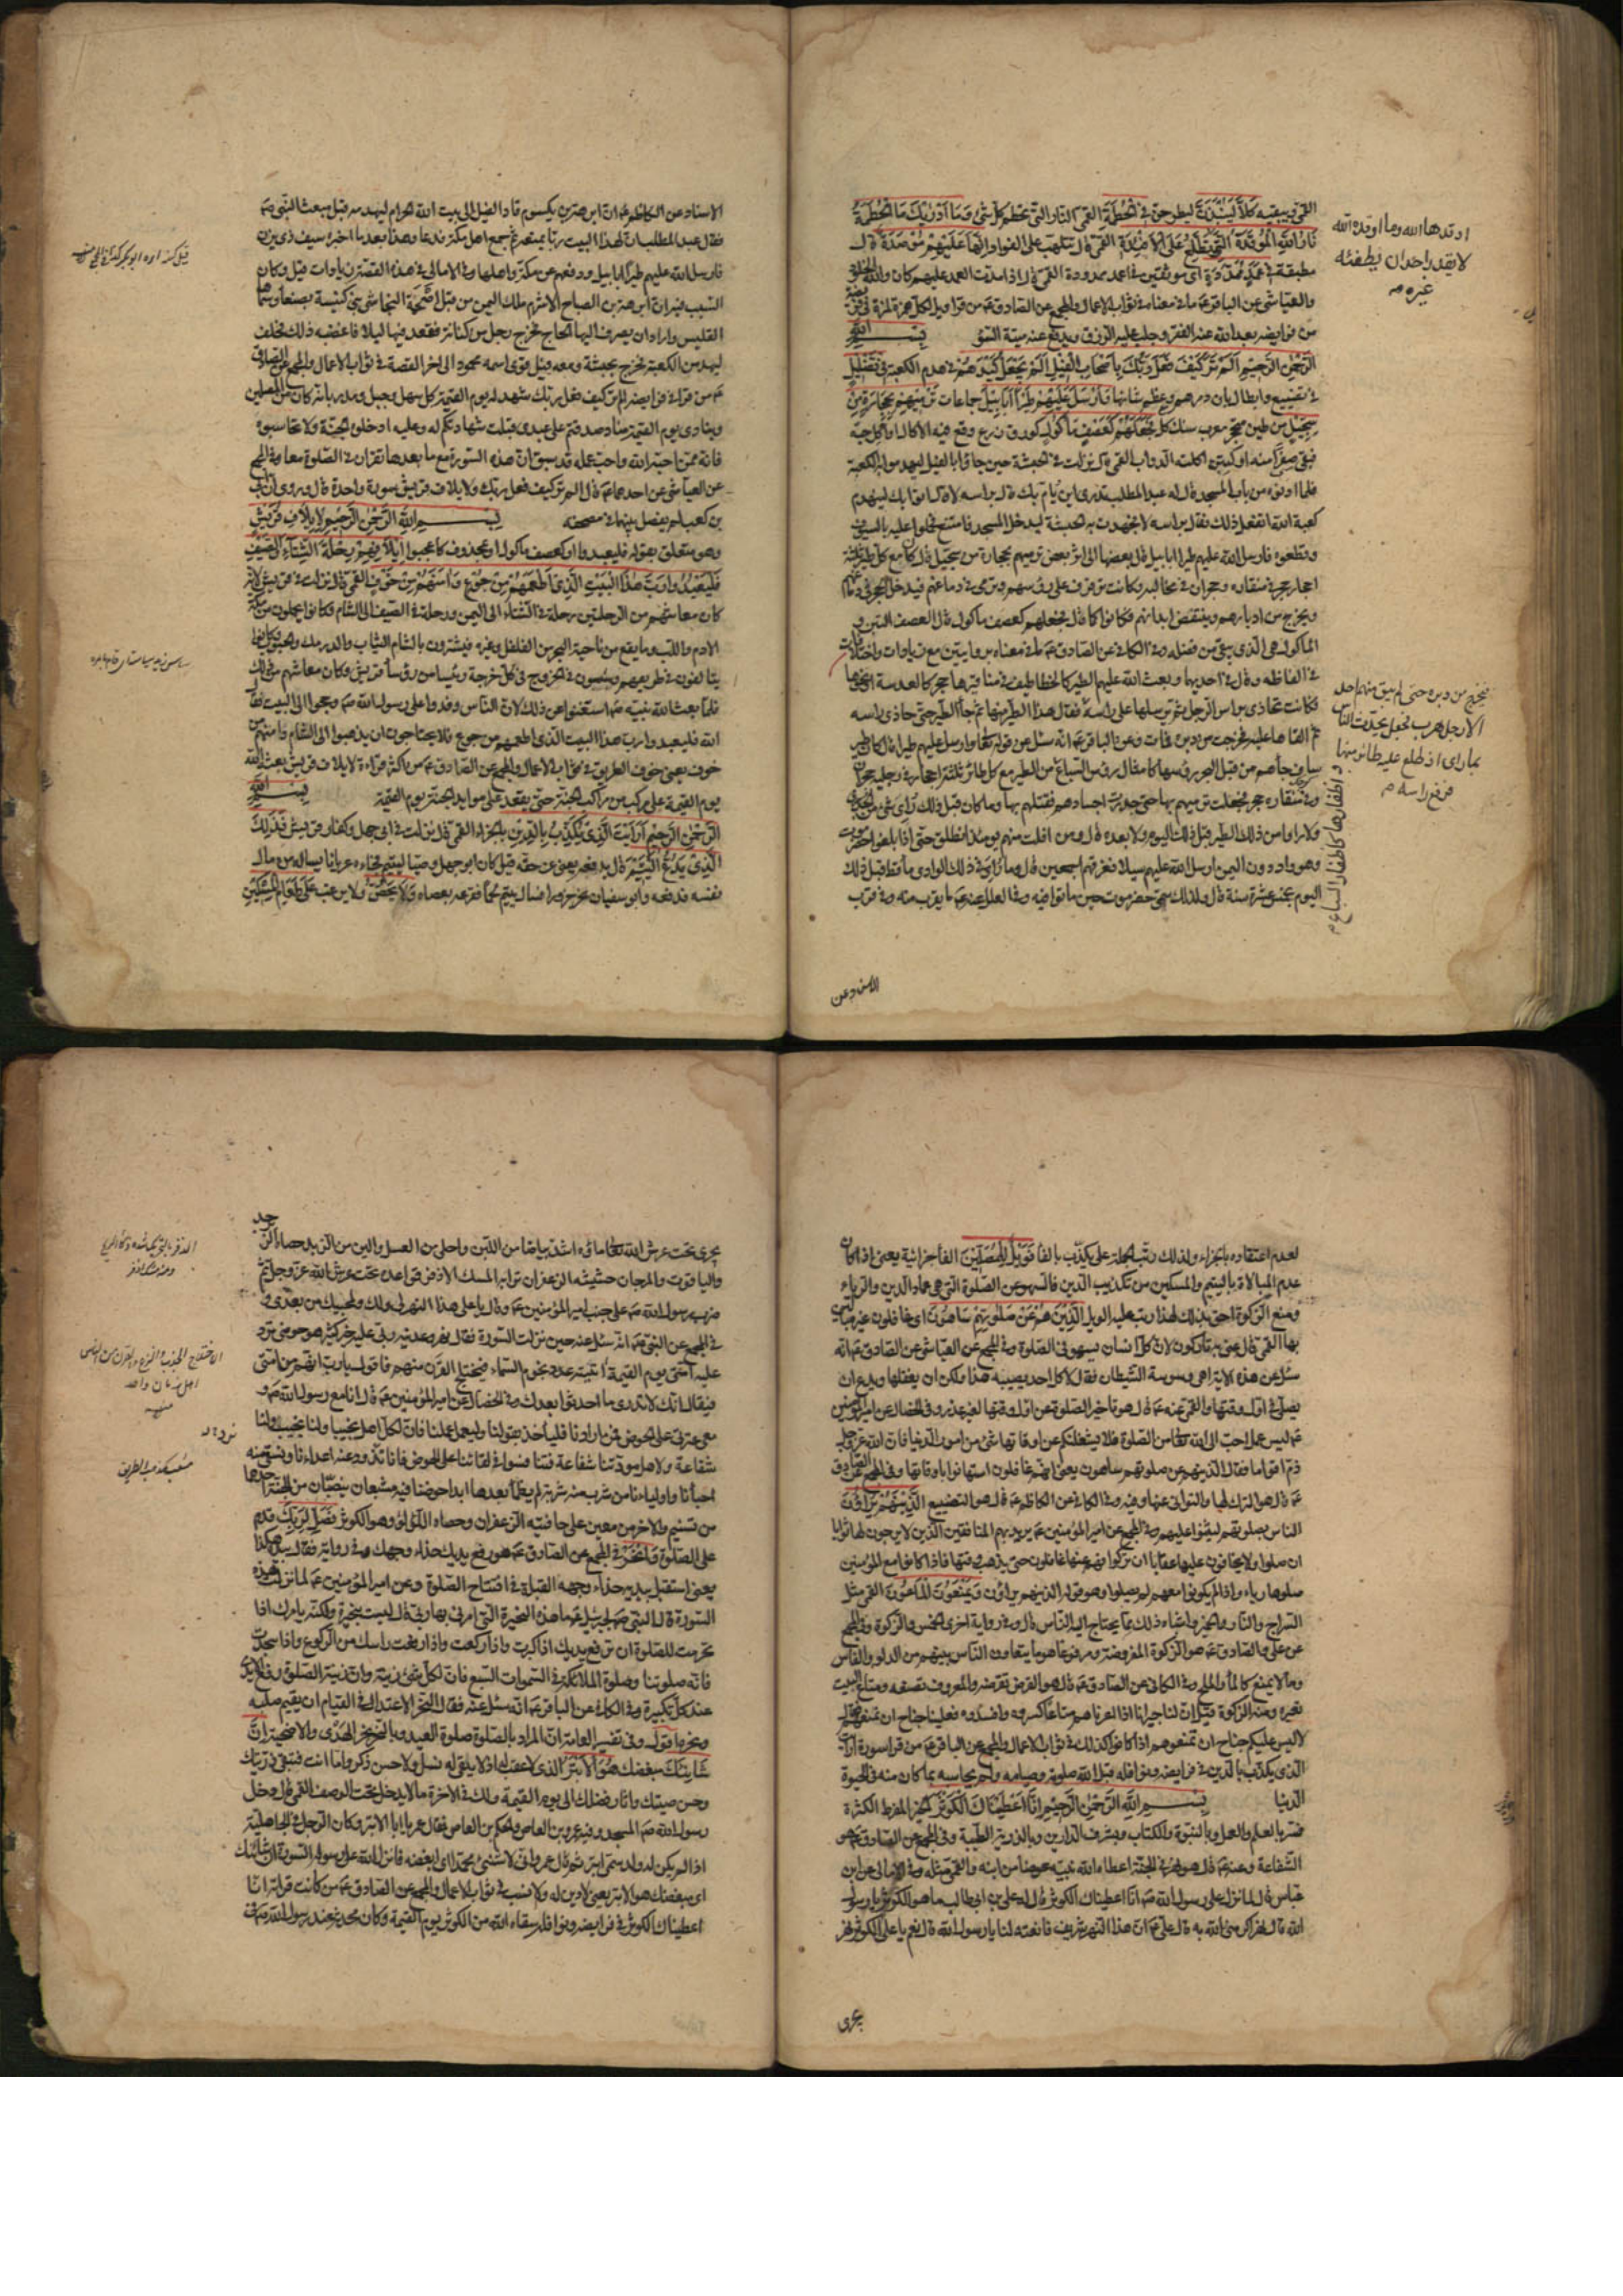 القمّي ويبقيه كَلَّا لَيُنْبَذَنَّ ليطرحنّ فِي الْحُطَمَةِ القمّي النار التي تحطم كل شيء وَمَا أَدْرٰيكَ مَا الْحُطَمَةُ
نَارُ اللَّهِ الْمُوقَدَةُ الَّتِي تَطَّلِعُ عَلَى الْأَفْئِدَةِ القمّي قال تلتهب على الفواد إِنَّهَا عَلَيْهِمْ مُؤْصَدَةٌ قال
مطبقة فِي عَمَدٍ مُمَدَّدَةٍ اى موثقين في اعمد ممدودة القمّي قال اذا مدّت العمد عليهم كان والله الخلود
والعياشي عن الباقر عم ما في معناه في ثواب الاعمال والمجمع عن الصادق عم من قرأ ويل لكل همزة لمزة في
من فرايضه بعد الله عنه الفقر وجلب عليه الرزق ويدفع عنه ميتة السوء بِسْمِ اللهِ
الرَّحْمٰنِ الرَّحِيمِ أَلَمْ تَرَ كَيْفَ فَعَلَ رَبُّكَ بِأَصْحَابِ الْفِيلِ أَلَمْ يَجْعَلْ كَيْدَهُمْ في هدم الكعبة فِي تَضْلِيلٍ
في تضييع وابطال بان دمرهم وعظم شانها وَأَرْسَلَ عَلَيْهِمْ طَيْراً أَبَابِيلَ جماعات تَرْمِيهِمْ بِحِجَارَةٍ مِنْ
سِجِّيلٍ من طين متحجر معرب سنك كل فَجَعَلَهُمْ كَعَصْفٍ مَأْكُولٍ كورق زرع وقع فيه الاكال او اكل حبه
فبقي صفراً منه او كتبن اكلته الدواب القمي قال نزلت في الحبشة حين جاؤا بالفيل ليهدموا به الكعبة
فلما ادنوه من باب المسجد قال له عبد المطلب تدرى اين يؤم بك قال براسه لا قال اتوا بك لتهدم
كعبة الله اتفعل ذلك فقال براسه لا فجهدت به الحبشة ليدخل المسجد فامتنع فحملوا عليه بالسيوف
وقطعوه فارسل الله عليهم طيرا ابابيل قال بعضها الى اثر بعض ترميهم بحجارة من سجيل قال كان مع كل طير ثلثة
احجار حجر في منقاره وحجران في مخاليبه وكانت ترفرف على رؤسهم وترمى في دماغهم فيدخل الحجر في دماغهم
ويخرج من ادبارهم وينتقض ابدانهم فكانوا كما قال فجعلهم كعصف مأكول قال العصف التبن و
المأكول هو الذي يبقى من فضله وفي الكافي عن الصادق عم ما في معناه بروايتين مع زيادات واختلافات
في الفاظه وقال في احديهما وبعث الله عليهم الطير كالخطاطيف في مناقيرها حجر كالعدسة او نحوها
فكانت تحاذى براس الرجل ثم ترسلها على راسه
اليوم بخمس عشرة سنة قال ولذلك سمى حضرموت حين ماتوا فيه وفي العلل عنه عم ما يقرب منه وفي قرب
اوقدها الله وما اوقده الله
لا يقدر احد ان يطفئه
غيره
فيخرج من دبره حتى لم يبق منهم احد
الا رجل هرب فجعل يحدث الناس
بما راى اذ طلع عليه طائر منها
فرفع راسه
الاسناد عن الكاظم عم ان ابرهة بن يكسوم قاد الفيل الى بيت الله الحرام ليهدمه قبل مبعث النبي ص
فقال عبد المطلب ان لهذا البيت ربا يمنعه ثم جمع اهل مكة فدعا وهذا بعد ما اخبره سيف ذي يزن
فارسل الله عليهم طيرا ابابيل ودفعهم عن مكة واهلها وفي الامالي في هذه القصة زيادات قيل وكان
السبب فيه ان ابرهة بن الصباح الاشرم ملك اليمن من قبل اصحمة النجاشي بنى كنيسة بصنعا وسماها
القليس واراد ان يصرف اليها الحاج فخرج رجل من كنانة فقعد فيها ليلا فاغضبه ذلك فحلف
ليهدمن الكعبة فخرج بجيشه ومعه فيل قوى اسمه محمود الى اخر القصة في ثواب الاعمال والمجمع عن الصادق
عم من قرأ في فرايضه الم تر كيف فعل ربك شهد له يوم القيمة كل سهل وجبل ومدر بانه كان من المصلين
وينادى يوم القيمة مناد صدقتم على عبدى قبلت شهادتكم له وعليه ادخلوه الجنة ولا تحاسبوه
فانه ممن احبه الله واحب عمله قد سبق ان هذه السورة مع ما بعدها تقران في الصلوة معا وفي المجمع
عن العياشي عن احدهما عم قال الم تر كيف فعل ربك ولايلاف قريش سورة واحدة قال وروى ان ابي
بن كعب لم يفصل بينهما في مصحفه بِسْمِ اللهِ الرَّحْمٰنِ الرَّحِيمِ لِإِيلَافِ قُرَيْشٍ
وهو متعلق بقوله فليعبدوا او كعصف مأكول او بمحذوف كاعجبوا إِيلَافِهِمْ رِحْلَةَ الشِّتَاءِ وَالصَّيْفِ
فَلْيَعْبُدُوا رَبَّ هٰذَا الْبَيْتِ الَّذِي أَطْعَمَهُمْ مِنْ جُوعٍ وَآمَنَهُمْ مِنْ خَوْفٍ القمي قال نزلت في قريش لانه
كان معاشهم من الرحلتين رحلة في الشتاء الى اليمن ورحلة في الصيف الى الشام فكانوا يحملون من مكة
الادم واللب وما يقع من ناحية البحر من الفلفل وغيره فيشترون بالشام الثياب والدرمك والحبوب وكانوا
يتألفون في طريقهم ويثبتون في الخروج في كل خرجة رئيسا من رؤسا قريش وكان معاشهم من ذلك
فلما بعث الله نبيه ص استغنوا عن ذلك لان الناس وفدوا على رسول الله ص وحجوا الى البيت فقال
الله فليعبدوا رب هذا البيت الذي اطعمهم من جوع فلا يحتاجون ان يذهبوا الى الشام وآمنهم من
خوف يعنى خوف الطريق في ثواب الاعمال والمجمع عن الصادق عم من اكثر قراءة لايلاف قريش بعثه الله
يوم القيمة على مركب من مراكب الجنة حتى يقعد على موايد الجنة يوم القيمة بِسْمِ اللهِ
الرَّحْمٰنِ الرَّحِيمِ أَرَأَيْتَ الَّذِي يُكَذِّبُ بِالدِّينِ بالجزاء القمي قال نزلت في ابى جهل وكفار قريش فَذٰلِكَ
الَّذِي يَدُعُّ الْيَتِيمَ قال يدفعه يعنى عن حقه قيل كان ابو جهل وصيا ليتيم فجاءه عريانا يساله من مال
نفسه فدفعه وابو سفيان نحر جزورا فسال يتيم لحما فقرعه بعصاه وَلَا يَحُضُّ ولا يرغب عَلَى طَعَامِ الْمِسْكِينِ
لعدم اعتقاده بالجزاء ولذلك رتب الجملة على يكذب بالفاء فَوَيْلٌ لِلْمُصَلِّينَ الفاء جزائية يعنى اذا كان
عدم المبالاة باليتيم والمسكين من تكذيب الدين فالسهو عن الصلوة التي هي عماد الدين والرياء
ومنع الزكوة احق بذلك ولهذا رتب عليها الويل الَّذِينَ هُمْ عَنْ صَلَاتِهِمْ سَاهُونَ اى غافلون غير مبالين
بها القمي قال عنى به تاركون لان كل انسان يسهو في الصلوة وفي المجمع عن العياشي عن الصادق عم انه
سئل عن هذه الاية اهى وسوسة الشيطان فقال لا كل احد يصيبه هذا ولكن ان يغفلها ويدع ان
يصلى في اول وقتها والقمي عنه عم قال هو تأخير الصلوة عن اول وقتها لغير عذر وفي الخصال عن امير المؤمنين
عم ليس عمل احب الى الله تعالى من الصلوة فلا يشغلنكم عن اوقاتها شئ من امور الدنيا فان الله عز وجل
ذم اقواما فقال الذين هم عن صلوتهم ساهون يعنى انهم غافلون استهانوا باوقاتها وفي المجمع عن الصادق
عم قال هو الترك لها والتوانى عنها وفيه وفي الكافي عن الكاظم عم قال هو التضييع الَّذِينَ هُمْ يُرَاؤُنَ
الناس بصلوتهم ليثنوا عليهم وفي المجمع عن امير المؤمنين عم يريد بهم المنافقين الذين لا يرجون لها ثوابا
ان صلوا ولا يخافون عليها عقابا ان تركوا فهم عنها غافلون حتى يذهب وقتها فاذا كانوا مع المؤمنين
صلوها رياء واذا لم يكونوا معهم لم يصلوا وهو قوله الذين هم يراؤن وَيَمْنَعُونَ الْمَاعُونَ القمي مثل
السراج والنار والخمير واشباه ذلك مما يحتاج اليه الناس قال وفي رواية اخرى الخمس والزكوة وفي المجمع
عن على والصادق عم هو الزكوة المفروضة ومرفوعا هو ما يتعاون الناس بينهم من الدلو والفاس
وما لا يمنع كالماء والملح وفي الكافي عن الصادق عم قال هو القرض تقرضه والمعروف تصنعه ومتاع البيت
تعيره ومنه الزكوة قيل ان لنا جيرانا اذا اعرناهم متاعا كسروه وافسدوه فعلينا جناح ان نمنعهم فقال
لا ليس عليكم جناح ان تمنعوهم اذا كانوا كذلك في ثواب الاعمال والمجمع عن الباقر عم من قرأ سورة ارايت
الذي يكذب بالدين في فرايضه ونوافله قبل الله صلوته وصيامه ولم يحاسبه بما كان منه في الحيوة
الدنيا بِسْمِ اللهِ الرَّحْمٰنِ الرَّحِيمِ إِنَّا أَعْطَيْنَاكَ الْكَوْثَرَ الخير المفرط الكثرة
فسر بالعلم والعمل وبالنبوة والكتاب وبشرف الدارين وبالذرية الطيبة وفي المجمع عن الصادق عم هو
الشفاعة وعنه عم قال هو نهر في الجنة اعطاه الله نبيه عوضا من ابنه والقمي مثله وفي الامالي عن ابن
عباس قال لما نزل على رسول الله ص انا اعطيناك الكوثر قال له على بن ابي طالب ما هو الكوثر يا رسول
الله قال نهر اكرمنى الله به قال على عم ان هذا النهر شريف فانعته لنا يا رسول الله قال نعم يا على الكوثر نهر
يجرى
يجرى تحت عرش الله تعالى ماؤه اشد بياضا من اللبن واحلى من العسل والين من الزبد حصاه الزبرجد
والياقوت والمرجان حشيشه الزعفران ترابه المسك الاذفر قواعده تحت عرش الله عز وجل ثم
ضرب رسول الله ص على جنب امير المؤمنين عم وقال يا على هذا النهر لى ولك ولمحبيك من بعدى و
في المجمع عن النبي ص انه سئل عنه حين نزلت السورة فقال نهر وعدنيه ربى عليه خير كثير هو حوضى ترد
عليه امتى يوم القيمة آنيته عدد نجوم السماء فيختلج القرن منهم فاقول يا رب انهم من امتى
فيقال انك لا تدرى ما احدثوا بعدك وفي الخصال عن امير المؤمنين عم قال انا مع رسول الله ص و
معى عترتى على الحوض فمن ارادنا فلياخذ بقولنا وليعمل عملنا فان لكل اهل نجيبا ولنا نجيب ولنا
شفاعة ولاهل مودتنا شفاعة فتنافسوا في لقائنا على الحوض فانا نذود عنه اعداءنا ونسقى منه
احباءنا واولياءنا من شرب منه شربة لم يظمأ بعدها ابدا حوضنا فيه مثعبان ينصبان من الجنة احدهما
من تسنيم والاخر من معين على حافتيه الزعفران وحصاه اللؤلؤ وهو الكوثر فَصَلِّ لِرَبِّكَ فدم
على الصلوة وَانْحَرْ في المجمع عن الصادق عم هو رفع يديك حذاء وجهك وفي رواية فقال بيده هكذا
يعنى استقبل بيديه حذاء وجهه القبلة في افتتاح الصلوة وعن امير المؤمنين عم لما نزلت هذه
السورة قال النبي ص لجبرئيل عم ما هذه النحيرة التي امرنى بها ربى قال ليست بنحيرة ولكنه يامرك اذا
تحرمت للصلوة ان ترفع يديك اذا كبرت واذا ركعت واذا رفعت راسك من الركوع واذا سجدت
فانه صلوتنا وصلوة الملائكة في السموات السبع فان لكل شئ زينة وان زينة الصلوة رفع الايدى
عند كل تكبيرة وفي الكافي عن الباقر عم انه سئل عنه فقال النحر الاعتدال في القيام ان يقيم صلبه
ونحره وفي تفسير العامة ان المراد بالصلوة صلوة العيد وبالنحر نحر الهدى والاضحية إِنَّ
شَانِئَكَ مبغضك هُوَ الْأَبْتَرُ الذي لا عقب له اذ لا يبقى له نسل ولا حسن ذكر واما انت فتبقى ذريتك
وحسن صيتك واثار فضلك الى يوم القيمة ولك في الاخرة ما لا يدخل تحت الوصف القمي قال دخل
رسول الله ص المسجد وفيه عمرو بن العاص والحكم بن العاص فقال عمرو يا ابا الابتر وكان الرجل في الجاهلية
اذا لم يكن له ولد سمى ابتر ثم قال عمرو انى لاشنئ محمدا اى ابغضه فانزل الله على رسوله السورة ان شانئك
اى مبغضك هو الابتر يعنى لا دين له ولا نسب في ثواب الاعمال والمجمع عن الصادق عم من كانت قراءته انا
اعطيناك الكوثر في فرايضه ونوافله سقاه الله من الكوثر يوم القيمة وكان محدثه عند رسول الله ص في